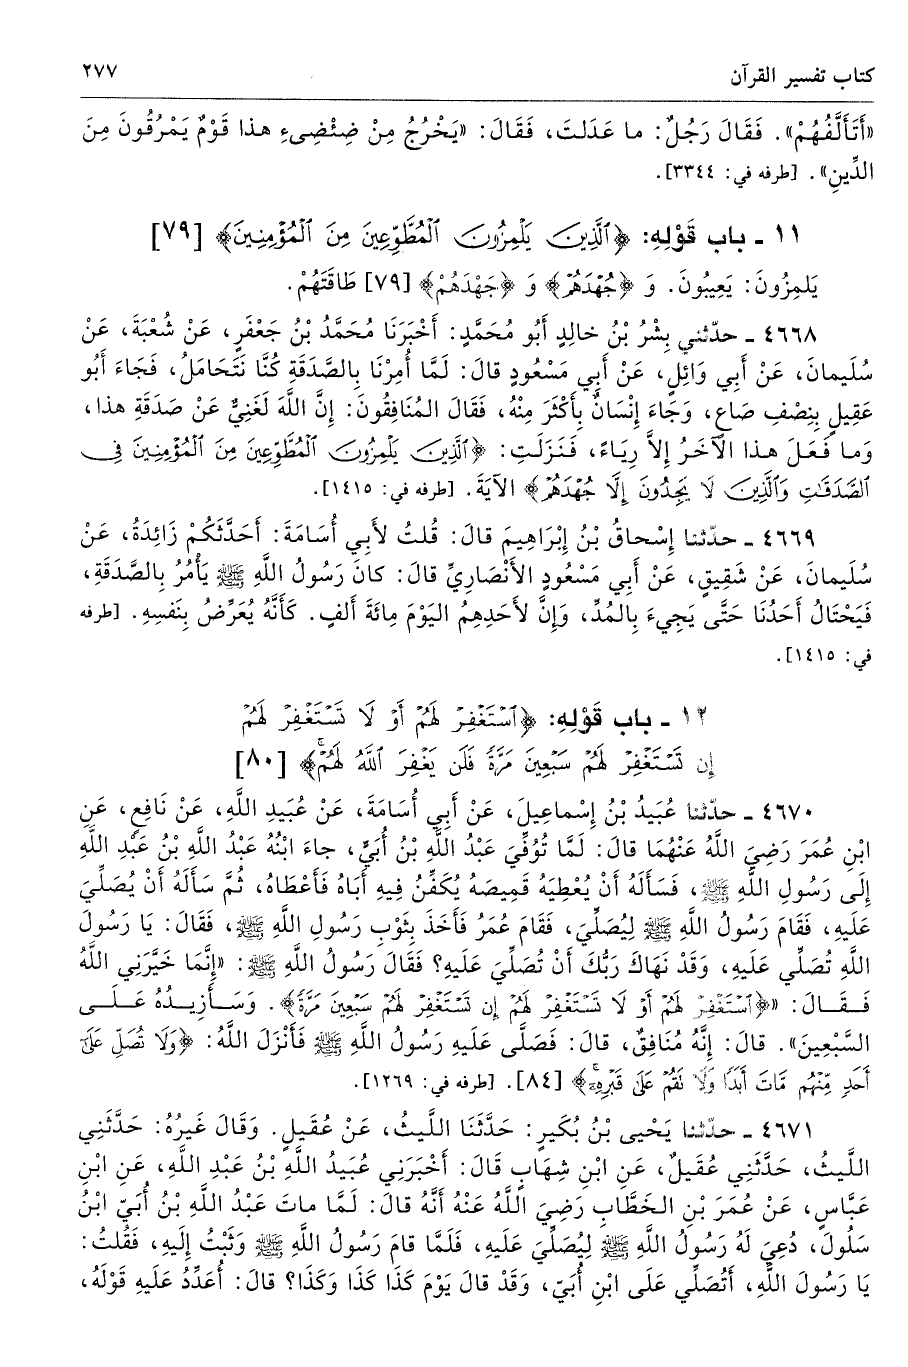 كتاب تفسير القرآن ٢٧٧
«أَتَأَلَّفُهُمْ». فَقَالَ رَجُلٌ: ما عَدَلتَ، فَقَالَ: «يَخْرُجُ مِنْ ضِئْضِىءِ هذا قَوْمٌ يَمْرُقُونَ مِنَ
الدِّينِ». [طرفه في: ٣٣٤٤].
١١ ـ باب قَوْلِهِ: ﴿ٱلَّذِينَ يَلْمِزُونَ ٱلْمُطَّوِّعِينَ مِنَ ٱلْمُؤْمِنِينَ﴾ [٧٩]
يَلمِزُونَ: يَعِيبُونَ. وَ ﴿جُهْدَهُمْ﴾ وَ ﴿جَهْدَهُمْ﴾ [٧٩] طَاقَتَهُمْ.
٤٦٦٨ ـ حدّثني بِشْرُ بْنُ خالِدٍ أَبُو مُحَمَّدٍ: أَخْبَرَنَا مُحَمَّدُ بْنُ جَعْفَرٍ، عَنْ شُعْبَةَ، عَنْ
سُلَيمانَ، عَنْ أَبِي وَائِلٍ، عَنْ أَبِي مَسْعُودٍ قالَ: لَمَّا أُمِرْنَا بِالصَّدَقَةِ كُنَّا نَتَحَامَلُ، فَجَاءَ أَبُو
عَقِيلٍ بِنِصْفِ صَاعٍ، وَجَاءَ إِنْسَانٌ بِأَكْثَرَ مِنْهُ، فَقَالَ المُنَافِقُونَ: إِنَّ اللَّهَ لَغَنِيٌّ عَنْ صَدَقَةِ هذا،
وَما فَعَلَ هذا الآخَرُ إِلاَّ رِيَاءً، فَنَزَلَتِ: ﴿ٱلَّذِينَ يَلْمِزُونَ ٱلْمُطَّوِّعِينَ مِنَ ٱلْمُؤْمِنِينَ فِي
ٱلصَّدَقَٰتِ وَٱلَّذِينَ لَا يَجِدُونَ إِلَّا جُهْدَهُمْ﴾ الآيَةَ. [طرفه في: ١٤١٥].
٤٦٦٩ ـ حدّثنا إِسْحاقُ بْنُ إِبْرَاهِيمَ قالَ: قُلتُ لأَبِي أُسَامَةَ: أَحَدَّثَكُمْ زَائِدَةُ، عَنْ
سُلَيمانَ، عَنْ شَقِيقٍ، عَنْ أَبِي مَسْعُودٍ الأَنْصَارِيِّ قالَ: كانَ رَسُولُ اللَّهِ ﷺ يَأْمُرُ بِالصَّدَقَةِ،
فَيَحْتَالُ أَحَدُنَا حَتَّى يَجِيءَ بِالمُدِّ، وَإِنَّ لأَحَدِهِمُ اليَوْمَ مِائَةَ أَلفٍ. كَأَنَّهُ يُعَرِّضُ بِنَفسِهِ. [طرفه
في: ١٤١٥].
١٢ ـ باب قَوْلِهِ: ﴿ٱسْتَغْفِرْ لَهُمْ أَوْ لَا تَسْتَغْفِرْ لَهُمْ
إِن تَسْتَغْفِرْ لَهُمْ سَبْعِينَ مَرَّةً فَلَن يَغْفِرَ ٱللَّهُ لَهُمْ﴾ [٨٠]
٤٦٧٠ ـ حدّثنا عُبَيدُ بْنُ إِسْماعِيلَ، عَنْ أَبِي أُسَامَةَ، عَنْ عُبَيدِ اللَّهِ، عَنْ نَافِعٍ، عَنِ
ابْنِ عُمَرَ رَضِيَ اللَّهُ عَنْهُمَا قالَ: لَمَّا تُوُفِّيَ عَبْدُ اللَّهِ بْنُ أُبَيٍّ، جاءَ ابْنُهُ عَبْدُ اللَّهِ بْنُ عَبْدِ اللَّهِ
إِلَى رَسُولِ اللَّهِ ﷺ، فَسَأَلَهُ أَنْ يُعْطِيَهُ قَمِيصَهُ يُكَفِّنُ فِيهِ أَبَاهُ فَأَعْطَاهُ، ثُمَّ سَأَلَهُ أَنْ يُصَلِّيَ
عَلَيهِ، فَقَامَ رَسُولُ اللَّهِ ﷺ لِيُصَلِّيَ، فَقَامَ عُمَرُ فَأَخَذَ بِثَوْبِ رَسُولِ اللَّهِ ﷺ، فَقَالَ: يَا رَسُولَ
اللَّهِ تُصَلِّي عَلَيهِ، وَقَدْ نَهَاكَ رَبُّكَ أَنْ تُصَلِّيَ عَلَيهِ؟ فَقَالَ رَسُولُ اللَّهِ ﷺ: «إِنَّمَا خَيَّرَنِي اللَّهُ
فَقَالَ: «﴿ٱسْتَغْفِرْ لَهُمْ أَوْ لَا تَسْتَغْفِرْ لَهُمْ إِن تَسْتَغْفِرْ لَهُمْ سَبْعِينَ مَرَّةً﴾. وَسَأَزِيدُهُ عَلَى
السَّبْعِينَ». قالَ: إِنَّهُ مُنَافِقٌ، قالَ: فَصَلَّى عَلَيهِ رَسُولُ اللَّهِ ﷺ فَأَنْزَلَ اللَّهُ: ﴿وَلَا تُصَلِّ عَلَىٰٓ
أَحَدٍ مِّنْهُم مَّاتَ أَبَدًا وَلَا نَقُمْ عَلَىٰ قَبْرِهِۦٓ﴾ [٨٤]. [طرفه في: ١٢٦٩].
٤٦٧١ ـ حدّثنا يَحْيى بْنُ بُكَيرٍ: حَدَّثَنَا اللَّيثُ، عَنْ عُقَيلٍ. وَقَالَ غَيرُهُ: حَدَّثَنِي
اللَّيثُ، حَدَّثَنِي عُقَيلٌ، عَنِ ابْنِ شِهَابٍ قَالَ: أَخْبَرَنِي عُبَيدُ اللَّهِ بْنُ عَبْدِ اللَّهِ، عَنِ ابْنِ
عَبَّاسٍ، عَنْ عُمَرَ بْنِ الخَطَّابِ رَضِيَ اللَّهُ عَنْهُ أَنَّهُ قالَ: لَمَّا ماتَ عَبْدُ اللَّهِ بْنُ أُبَيّ ابْنُ
سَلُولَ، دُعِيَ لَهُ رَسُولُ اللَّهِ ﷺ لِيُصَلِّيَ عَلَيهِ، فَلَمَّا قامَ رَسُولُ اللَّهِ ﷺ وَثَبْتُ إِلَيهِ، فَقُلتُ:
يَا رَسُولَ اللَّهِ، أَتُصَلِّي عَلَى ابْنِ أُبَيّ، وَقَدْ قالَ يَوْمَ كَذَا كَذَا وَكَذَا؟ قالَ: أُعَدِّدُ عَلَيهِ قَوْلَهُ،